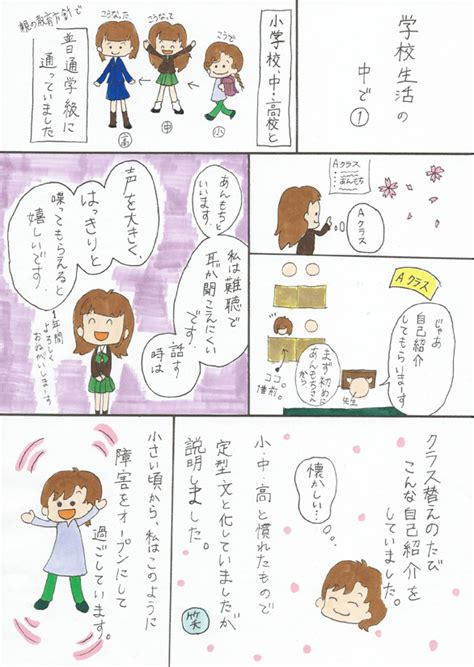 学校生活の
中で①
親の教育方針で
小学校・中・高校と
普通学級に
通っていました
こうで
こうなって
こうなった
小
中
高
Aクラス
あんもち
Aクラス
Aクラス
じゃあ
自己紹介
してもらいまーす
まず初めに
あんもちさん
から
先生
ココ。
1番前。
あんもちと
いいます。
私は難聴で
耳が聞こえにくい
です。
話す
時は
声を大きく、
はっきりと
喋ってもらえると
嬉しいです。
1年間
よろしく
おねがいしまーす
クラス替えのたび
こんな自己紹介を
していました。
懐かしい…
小・中・高と慣れたもので
定型文と化していましたが
説明しました。
笑
小さい頃から、私はこのように
障害をオープンにして
過ごしています。